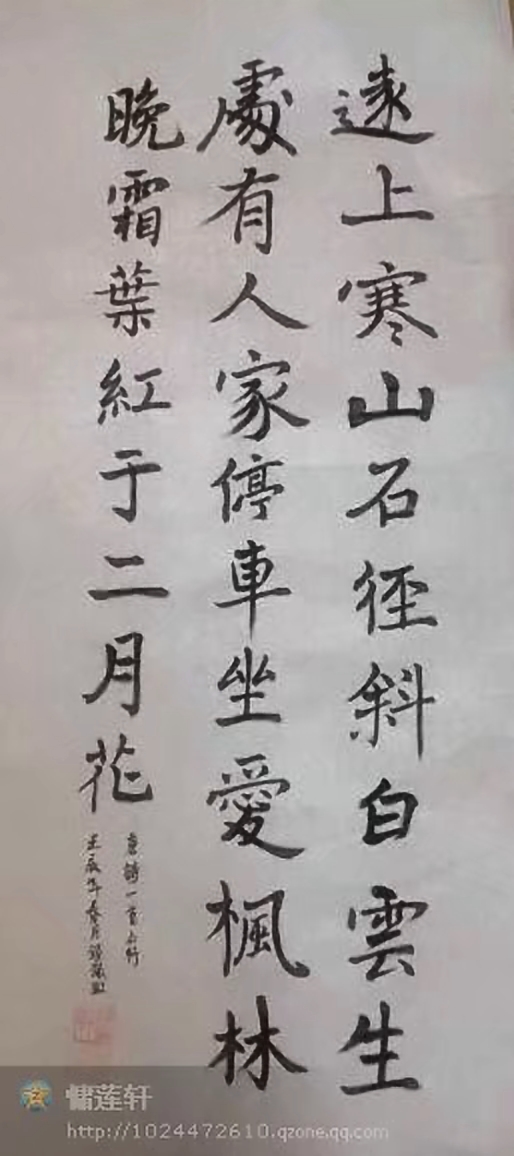 遠上寒山石徑斜白雲生
處有人家停車坐愛楓林
晚霜葉紅于二月花
唐詩一首山行
壬辰年春月
慵莲轩
http://1024472610.qzone.qq.com